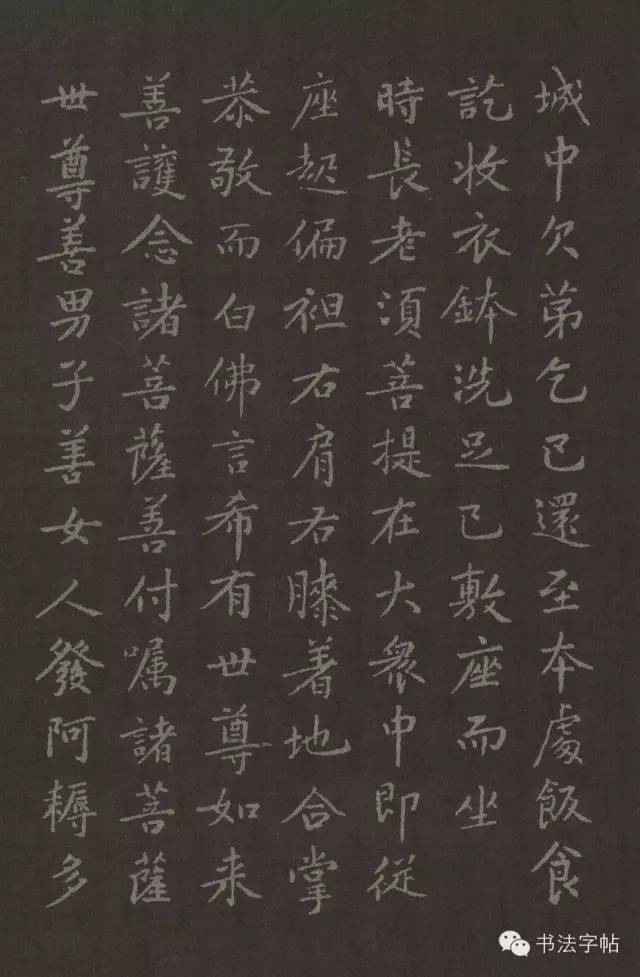 城中次第乞已還至本處飯食
訖收衣鉢洗足已敷座而坐
時長老須菩提在大眾中即從
座起偏袒右肩右膝着地合掌
恭敬而白佛言希有世尊如来
善護念諸菩薩善付嘱諸菩薩
世尊善男子善女人發阿耨多
书法字帖